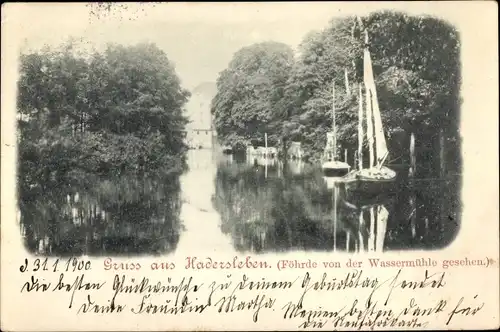 d. 3 1. 1 1900 Gruss aus Hadersleben. (Föhrde von der Wassermühle gesehen.)
Die besten Glückwünsche zu Deinem Geburtstag sendet
Deine Freundin Martha. Meinen besten Dank für
die Neujahrskarte.